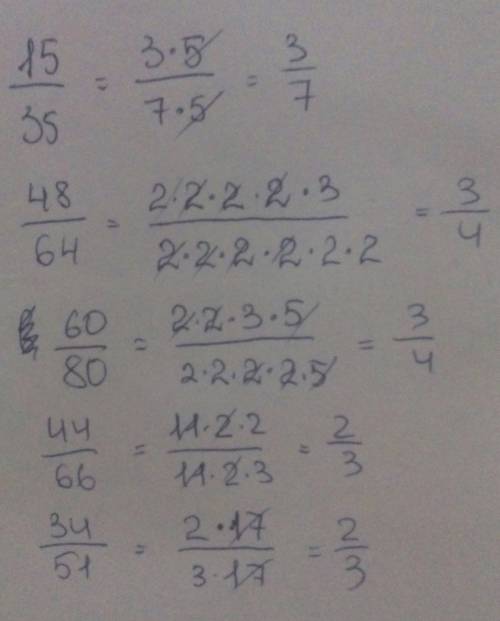 15/35 = 3·5/7·5 = 3/7
48/64 = 2·2·2·2·3/2·2·2·2·2·2 = 3/4
60/80 = 2·2·3·5/2·2·2·2·5 = 3/4
44/66 = 11·2·2/11·2·3 = 2/3
34/51 = 2·17/3·17 = 2/3